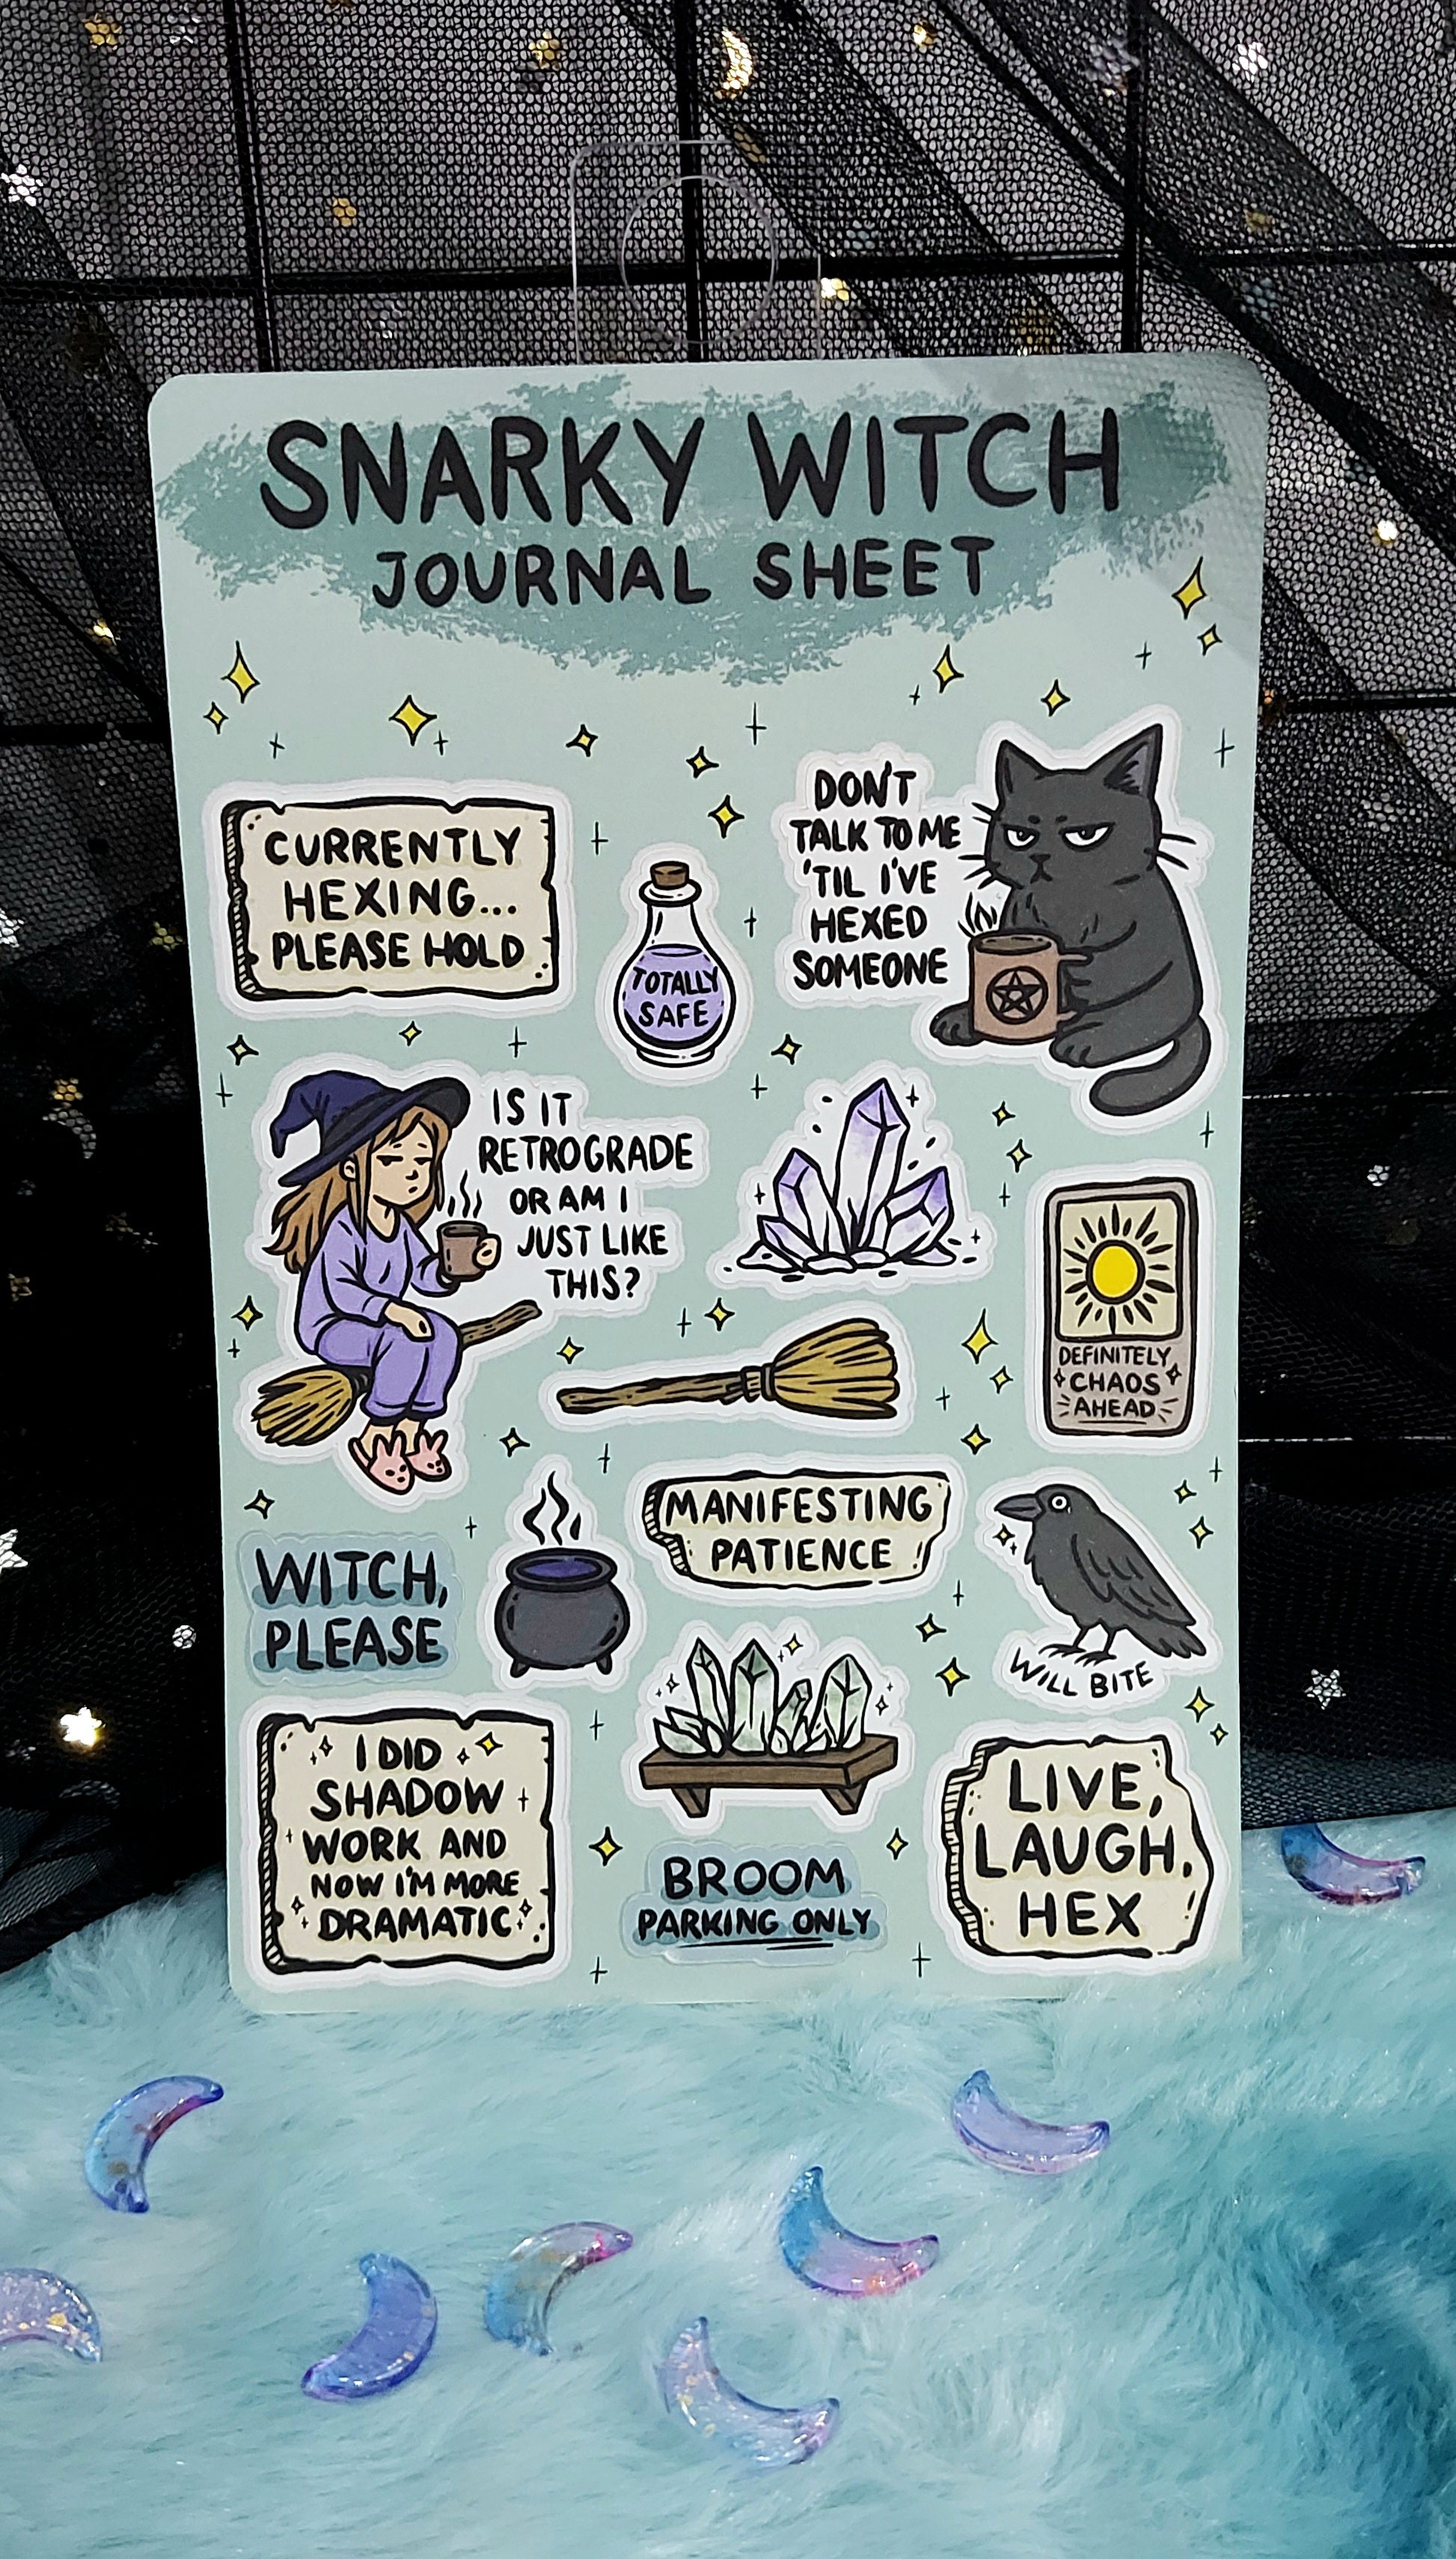 SNARKY WITCH
JOURNAL SHEET
CURRENTLY
HEXING...
PLEASE HOLD
TOTALLY
SAFE
DON'T
TALK TO ME
'TIL I'VE
HEXED
SOMEONE
IS IT
RETROGRADE
OR AM I
JUST LIKE
THIS?
DEFINITELY
CHAOS
AHEAD
WITCH,
PLEASE
MANIFESTING
PATIENCE
WILL BITE
I DID
SHADOW
WORK AND
NOW I'M MORE
DRAMATIC
BROOM
PARKING ONLY
LIVE,
LAUGH,
HEX